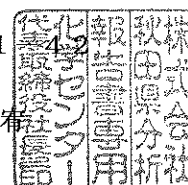 株式会社
秋田県分析
報告書専用
化学センター
代表取締役
1 4-2
布